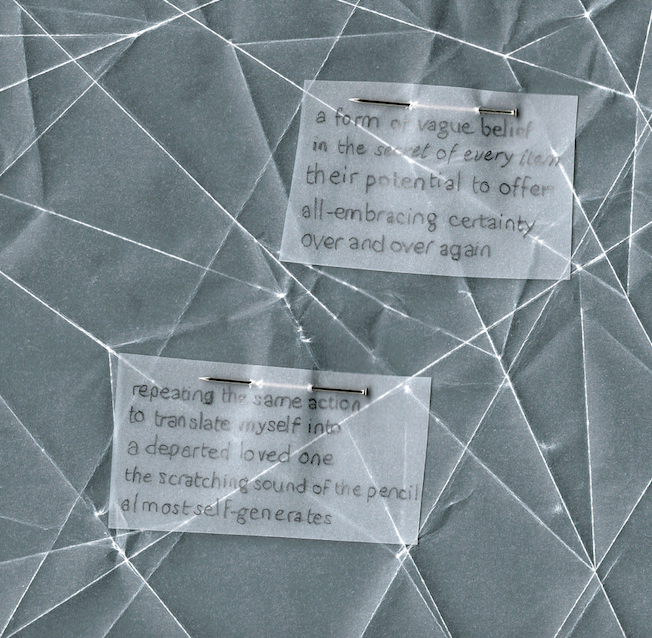 a form of vague belief
in the secret of every item
their potential to offer
all-embracing certainty
over and over again
repeating the same action
to translate myself into
a departed loved one
the scratching sound of the pencil
almost self-generates